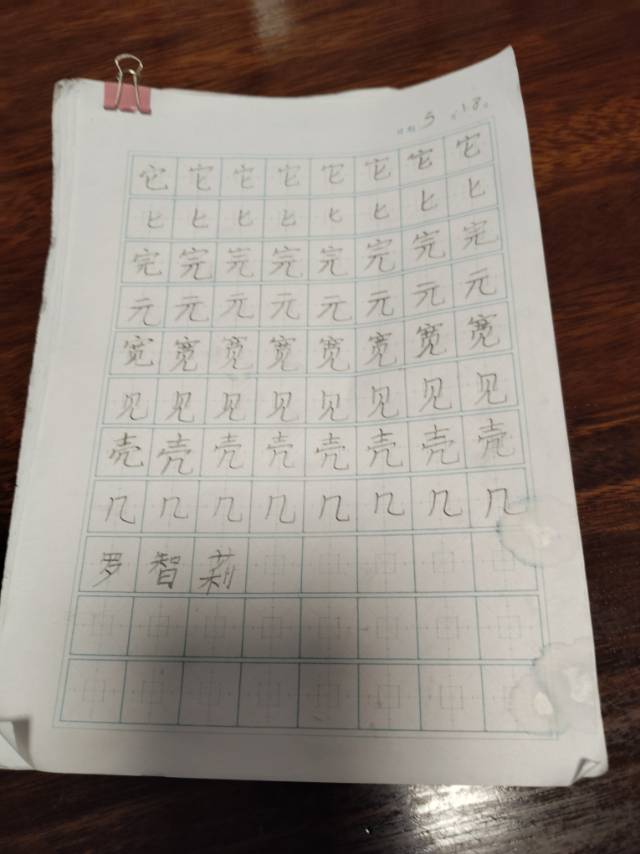 日期 5 月 18 日
它 它 它 它 它 它 它 它
匕 匕 匕 匕 匕 匕 匕 匕
完 完 完 完 完 完 完 完
元 元 元 元 元 元 元 元
宽 宽 宽 宽 宽 宽 宽 宽
见 见 见 见 见 见 见 见
壳 壳 壳 壳 壳 壳 壳 壳
几 几 几 几 几 几 几 几
罗 智 莉